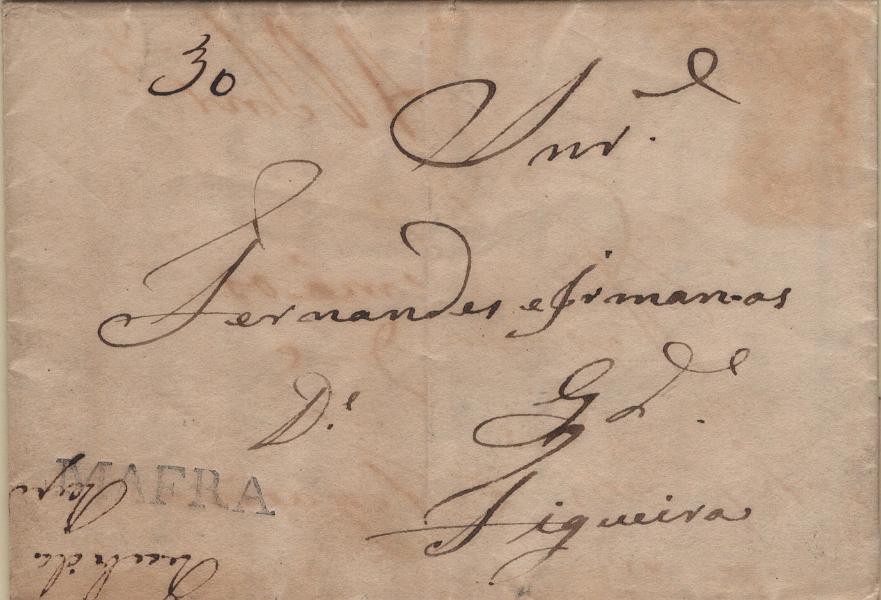 30
Snr.
Fernandes e Irman-os
D.s Gd.
Figueira
MAFRA